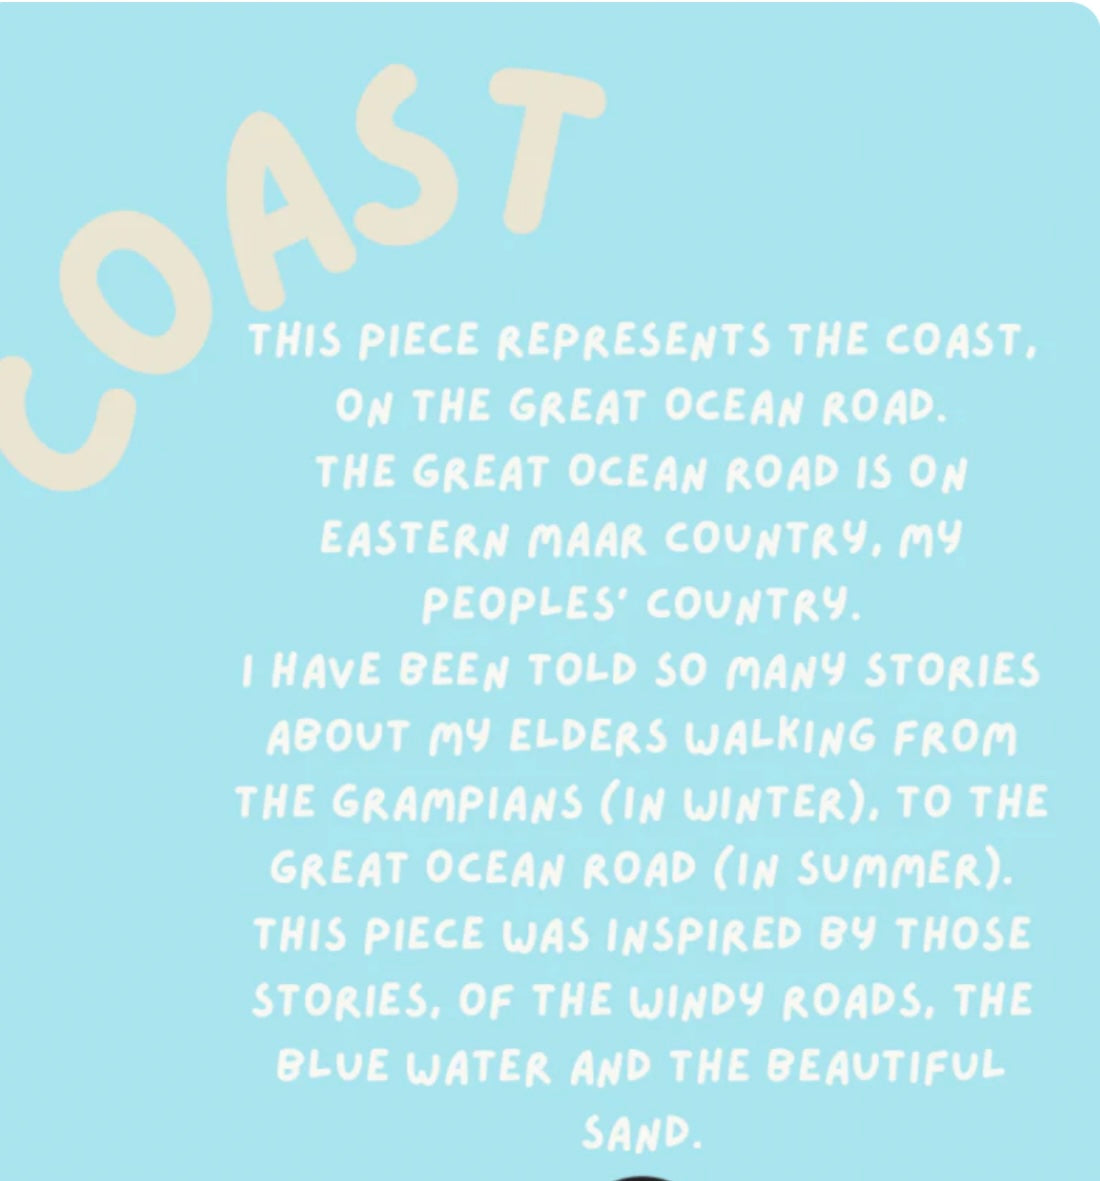 COAST
THIS PIECE REPRESENTS THE COAST,
ON THE GREAT OCEAN ROAD.
THE GREAT OCEAN ROAD IS ON
EASTERN MAAR COUNTRY, MY
PEOPLES' COUNTRY.
I HAVE BEEN TOLD SO MANY STORIES
ABOUT MY ELDERS WALKING FROM
THE GRAMPIANS (IN WINTER), TO THE
GREAT OCEAN ROAD (IN SUMMER).
THIS PIECE WAS INSPIRED BY THOSE
STORIES, OF THE WINDY ROADS, THE
BLUE WATER AND THE BEAUTIFUL
SAND.